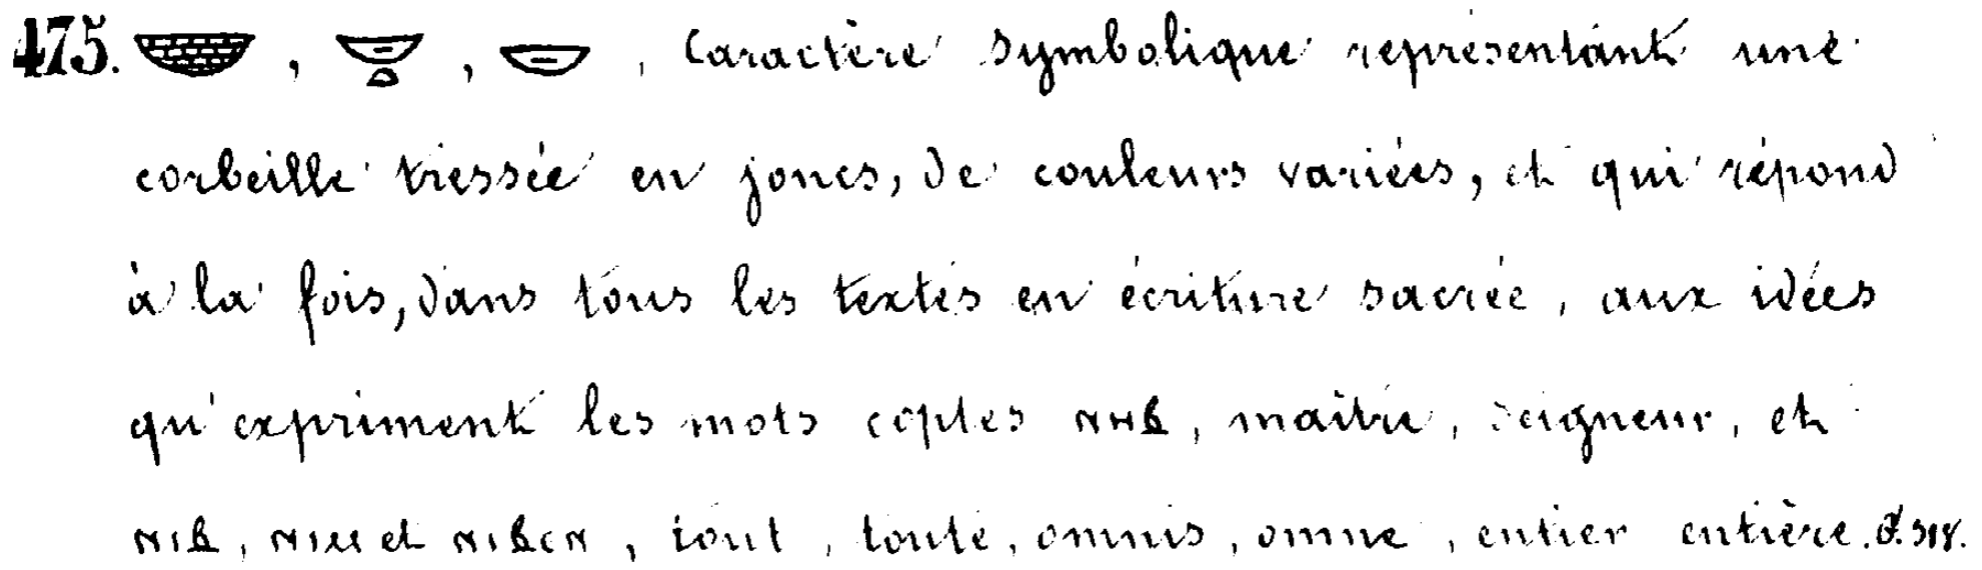 475. 𓎟, 𓎟𓏏, 𓎟, Caractère symbolique représentant une
corbeille tressée en joncs, de couleurs variées, et qui répond
à la fois, dans tous les textes en écriture sacrée, aux idées
qu'expriment les mots coptes ⲛⲏⲃ, maître, seigneur, et
ⲛⲓⲃ, ⲛⲓⲙ et ⲛⲓⲃⲉⲛ, tout, toute, omnis, omne, entier entière.